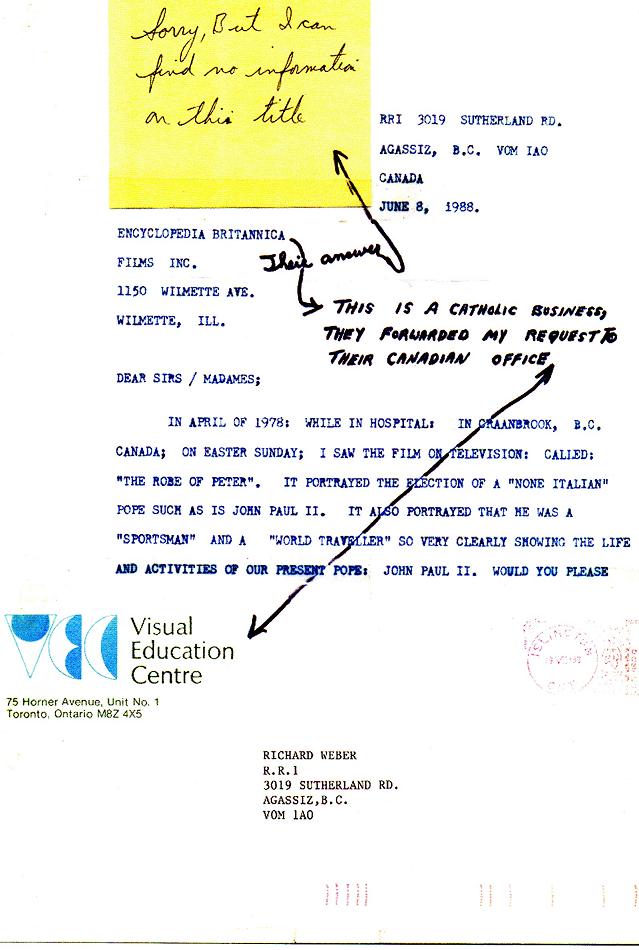 Sorry, But I can
find no information
on this title
RRI 3019 SUTHERLAND RD.
AGASSIZ, B.C. VOM IAO
CANADA
JUNE 8, 1988.
ENCYCLOPEDIA BRITANNICA
FILMS INC.
1150 WILMETTE AVE.
WILMETTE, ILL.
Their answer
THIS IS A CATHOLIC BUSINESS,
THEY FORWARDED MY REQUEST TO
THEIR CANADIAN OFFICE
DEAR SIRS / MADAMES;
IN APRIL OF 1978: WHILE IN HOSPITAL: IN CRANBROOK, B.C.
CANADA; ON EASTER SUNDAY; I SAW THE FILM ON TELEVISION: CALLED:
"THE ROBE OF PETER". IT PORTRAYED THE ELECTION OF A "NONE ITALIAN"
POPE SUCH AS IS JOHN PAUL II. IT ALSO PORTRAYED THAT HE WAS A
"SPORTSMAN" AND A "WORLD TRAVELLER" SO VERY CLEARLY SHOWING THE LIFE
AND ACTIVITIES OF OUR PRESENT POPE: JOHN PAUL II. WOULD YOU PLEASE
VEC
Visual
Education
Centre
75 Horner Avenue, Unit No. 1
Toronto, Ontario M8Z 4X5
RICHARD WEBER
R.R.1
3019 SUTHERLAND RD.
AGASSIZ,B.C.
VOM 1AO